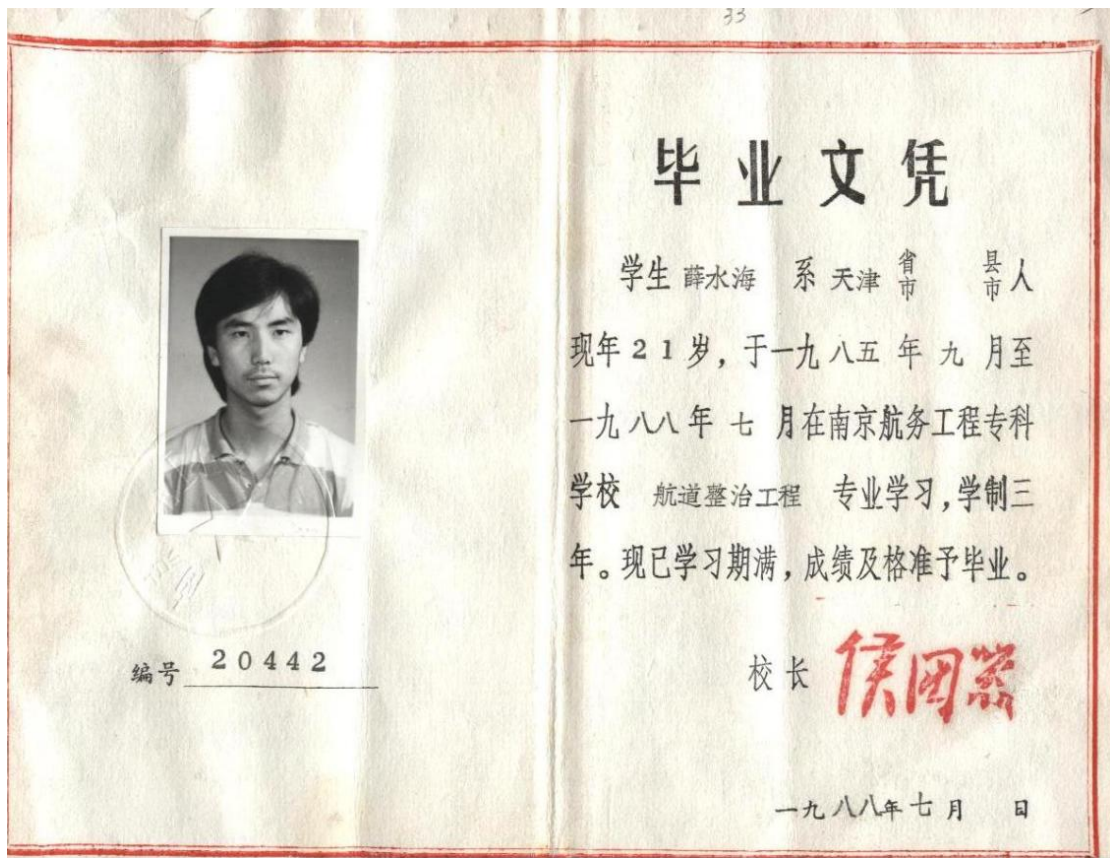 33
毕业文凭
学生 薛水海 系 天津 省市 县市 人
现年 21 岁，于一九八五 年 九 月至
一九八八年 七 月在南京航务工程专科
学校 航道整治工程 专业学习，学制三
年。现已学习期满，成绩及格准予毕业。
校长 侯国
编号 20442
一九八八年七月 日